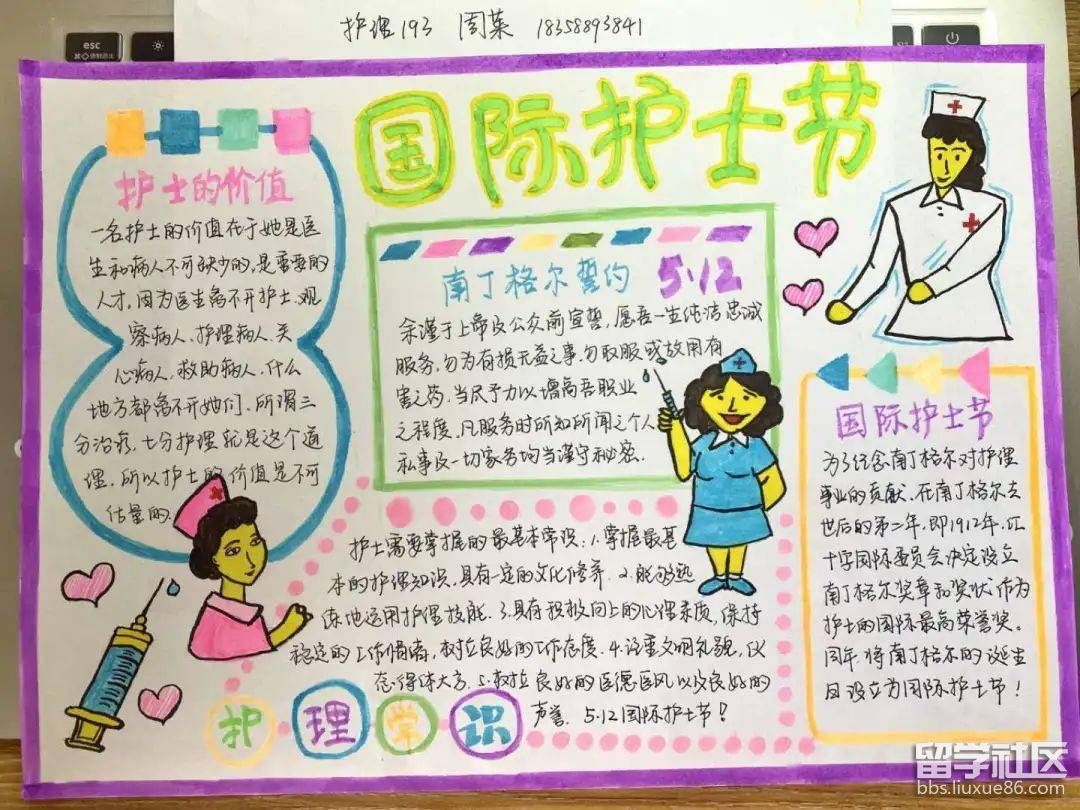 护理193 周菜 18358893841
esc
国际护士节
护士的价值
一名护士的价值在于她是医
生和病人不可缺少的,是需要的
人才,因为医生离不开护士,观
察病人、护理病人、关
心病人,救助病人,什么
地方都离不开她们,所谓三
分治疗,七分护理就是这个道
理,所以护士的价值是不可
估量的.
南丁格尔誓约 5·12
余谨于上帝及公众前宣誓,愿吾一生纯洁忠诚
服务,勿为有损无益之事,勿取服或故用有
害之药,当尽予力以增高吾职业
之程度,凡服务时所知所闻之个人
私事及一切家务均当谨守秘密.
国际护士节
为了纪念南丁格尔对护理
事业的贡献,在南丁格尔去
世后的第二年,即1912年,红
十字国际委员会决定设立
南丁格尔奖章和奖状作为
护士的国际最高荣誉奖。
同年,将南丁格尔的诞生
日设立为国际护士节!
护士需要掌握的最基本常识:1.掌握最基
本的护理知识,具有一定的文化修养.2.能够熟
练地运用护理技能.3.具有积极向上的心理素质,保持
稳定的工作情绪,树立良好的工作态度.4.注重文明礼貌,仪
态得体大方.5.树立良好的医德医风以及良好的
声誉. 5·12国际护士节!
护理常识
留学社区
bbs.liuxue86.com